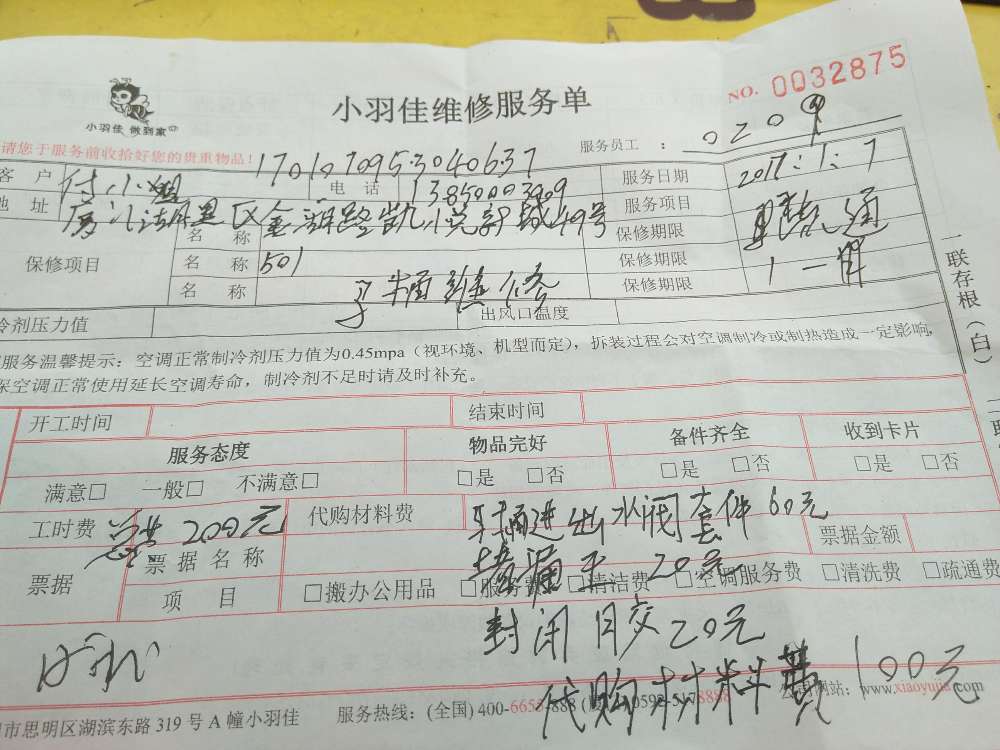 小羽佳 做到家
小羽佳维修服务单
NO. 0032875
请您于服务前收拾好您的贵重物品!
1701070953040637
服务员工 : 0209
客 户 付小姐 电 话 13850003909 服务日期 2017:1:7
地 址 金湖路凯悦新城49号 服务项目
名 称 保修期限
保修项目 名 称 501 保修期限
名 称 维修 保修期限
冷剂压力值 出风口温度
服务温馨提示：空调正常制冷剂压力值为0.45mpa（视环境、机型而定），拆装过程公对空调制冷或制热造成一定影响,
保空调正常使用延长空调寿命，制冷剂不足时请及时补充。
一联存根（白）
开工时间 结束时间
服务态度 物品完好 备件齐全 收到卡片
满意□ 一般□ 不满意□ □是 □否 □是 □否 □是 □否
工时费 200元 代购材料费 进出水阀套件60元
票据 票据名称 20元 票据金额
项 目 □搬办公用品 □服务费 □清洁费 □空调服务费 □清洗费 □疏通费
封闭 20元
代购材料费 100元
市思明区湖滨东路 319 号 A 幢小羽佳 服务热线：(全国) 400- 0592-5178888 公司网站：www.xiaoyujia.com